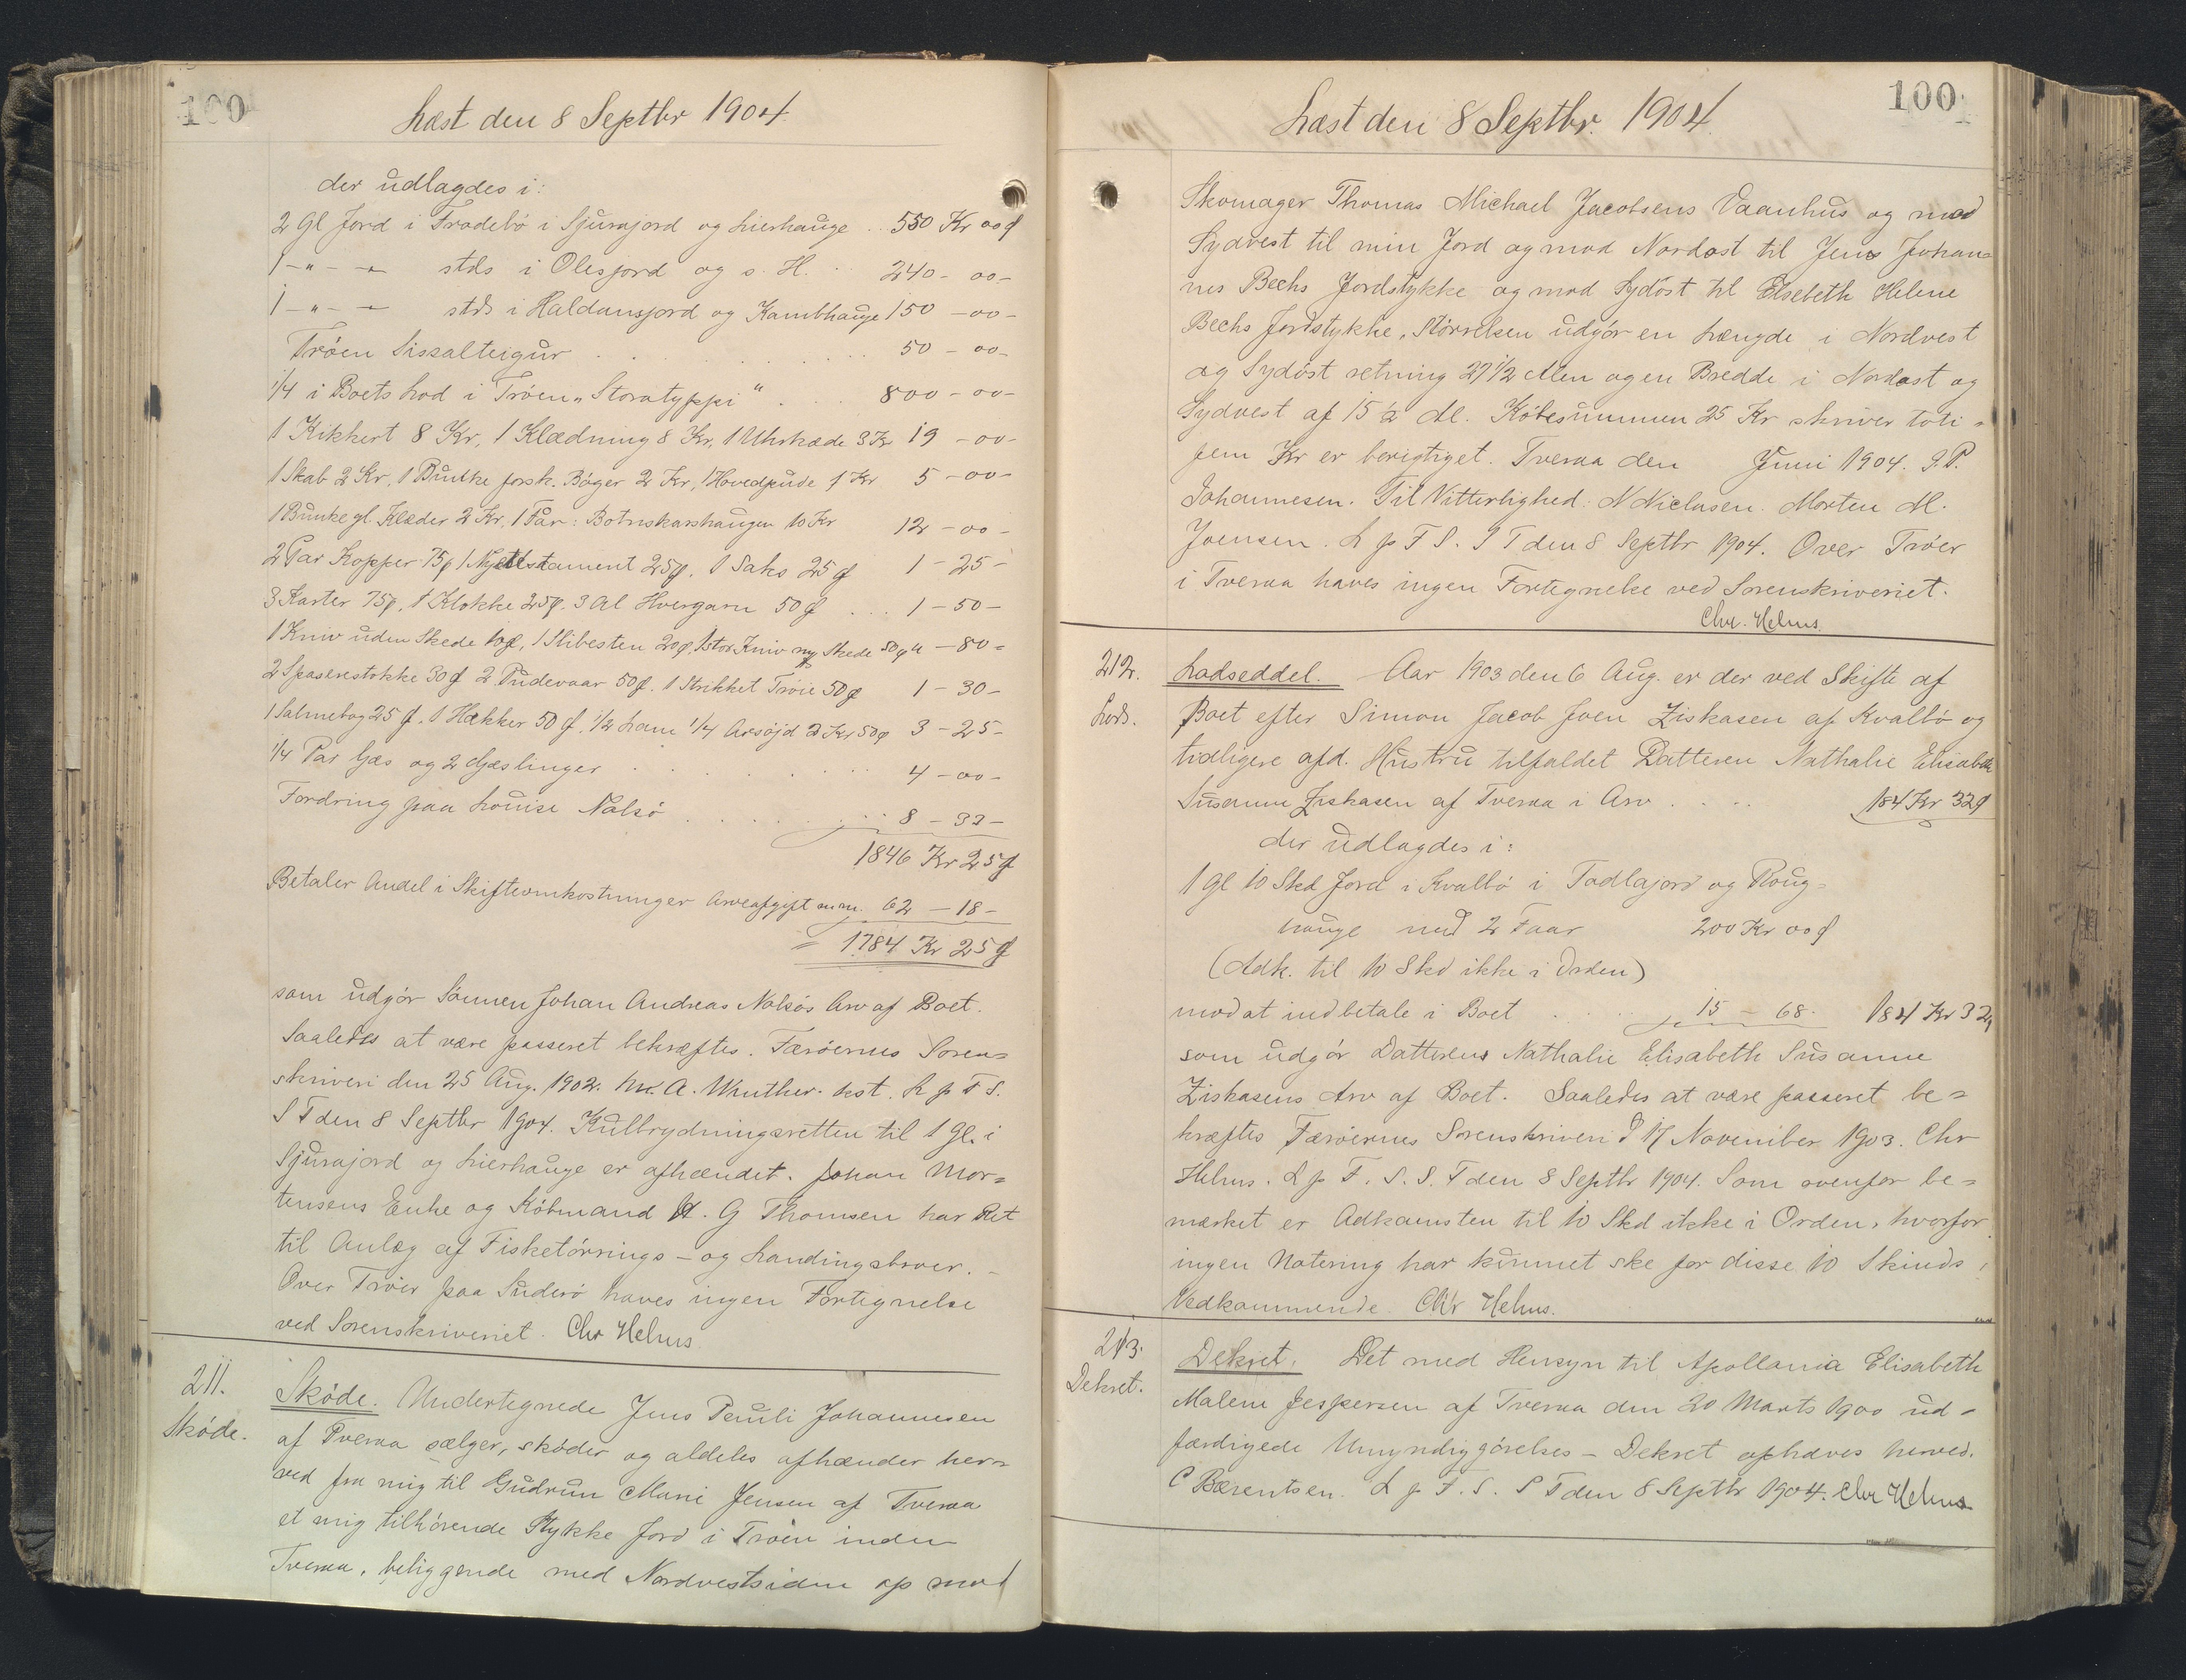 100
Læst den 8 Septbr 1904.
der udlagdes i:
2 Gl Jord i Frodebö i Sjurajord og Lierhauge .. 550 Kr 00 ø
1 - " - - " - stds i Olesjord og s. H. .. 240 - 00 -
1 - " - - " - stds i Haldansjord og Kambhauge 150 - 00 -
Tröen Sissalteigur . . . . 50 - 00 -
1/4 i Boets Lod i Tröen „Storatyppi“ . . . 800 - 00 -
1 Kikkert 8 Kr, 1 Klædning 8 Kr, 1 Uhrkæde 3 Kr 19 - 00 -
1 Skab 2 Kr, 1 Bunke forsk. Böger 2 Kr, 1 Hovedpude 1 Kr 5 - 00 -
1 Bunke gl. Klæder 2 Kr, 1 Faar i Botnskarshaugen 10 Kr 12 - 00 -
2 Par Kopper 75 ø 1 Nyetestament 25 ø, 1 Saks 25 ø 1 - 25 -
3 Karter 75 ø, 1 Klokke 25 ø. 3 Al Hvergarn 50 ø ... 1 - 50 -
1 Kniv uden Skede 10 ø, 1 Slibesten 20 ø, 1 stor Kniv ny Skede 50 ø " - 80 -
2 Spaserestokke 30 ø 2 Pudevaar 50 ø. 1 Strikket Tröie 50 ø 1 - 30 -
1 Salmebog 25 ø, 1 Hakker 50 ø, 1/2 Lam 1/4 2 Kr 50 ø 3 - 25 -
1/4 Par Gæs og 2 Gæslinger . . . . 4 - 00 -
Fordring paa Louise Nolsö . . . . 8 - 33 -
1846 Kr 25 ø
Betaler Andel i Skifteomkostninger Arveafgift m.m. 62 - 18 -
= 1784 Kr 25 ø
som udgör Sönnen Johan Andreas Nolsös Arv af Boet.
Saaledes at være passeret bekræftes. Færöernes Soren=
skriveri den 25 Aug. 1902. M. A. Winther. kst. L p F S.
S T den 8 Septbr 1904. Kulbrydningsretten til 1 Gl. i
Sjurajord og Lierhauge er afhændet. Johan Mor=
tensens Enke og Köbmand A. G Thomsen har Ret
til Anlæg af Fisketörrings- og Landingsbroer. -
Over Tröer paa Suderö haves ingen Fortegnelse
ved Sorenskriveriet. Chr Helms
211.
Sköde.
Sköde. Undertegnede Jens Pauli Johannesen
af Tveraa sælger, sköder og aldeles afhænder her=
ved fra mig til Gudrun Marie Jensen af Tveraa
et mig tilhörende Stykke Jord i Tröen inden
Tveraa, beliggende med Nordvestsiden op mod
100
Læst den 8 Septbr. 1904.
Skomager Thomas Michael Jacobsens Vaanhus og mod
Sydvest til min Jord og mod Nordost til Jens Johan=
nes Bechs Jordstykke og mod Sydöst til Elsebeth Helene
Bechs Jordstykke. Störrelsen udgör en Længde i Nordvest
og Sydöst retning 27 1/2 Alen og en Bredde i Nordost og
Sydvest af 15 1/2 Al. Köbesummen 25 Kr skriver toti=
fem Kr er berigtiget. Tveraa den Juni 1904. J. P.
Johannesen. Til Vitterlighed: N Niclasen. Morten M.
Joensen. L p F S. S T den 8 Septbr 1904. Over Tröer
i Tveraa haves ingen Fortegnelse ved Sorenskriveriet.
Chr. Helms.
212.
Lods.
Lodseddel. Aar 1903 den 6 Aug. er der ved Skifte af
Boet efter Simon Jacob Joen Ziskasen af Kvalbö og
tidligere afd. Hustru tilfaldet Datteren Nathalie Elisabeth
Susanne Ziskasen af Tveraa i Arv . . . . 184 Kr 32 ø
der udlagdes i:
1 Gl 10 Skd Jord i Kvalbö i Todlajord og Roug=
hauge med 2 Faar 200 Kr 00 ø
(Adk. til 10 Skd ikke i Orden)
mod at indbetale i Boet . . . 15 - 68. 184 Kr 32 ø
som udgör Datterens Nathalie Elisabeth Susanne
Ziskasens Arv af Boet. Saaledes at være passeret be=
kræftes Færöernes Sorenskriveri d 17 November 1903. Chr
Helms. L p F. S. S. T den 8 Septbr 1904. Som ovenfor be=
mærket er Adkomsten til 10 Skd ikke i Orden, hvorfor
ingen Notering har kunnet ske for disse 10 Skinds
Vedkommende. Chr Helms.
213.
Dekret.
Dekret. Det med Hensyn til Apollonia Elisabeth
Malene Jespersen af Tveraa den 20 Marts 1900 ud=
færdigede Umyndiggörelses - Dekret ophæves herved.
C Bærentsen. L p F. S. S T den 8 Septbr 1904. Chr Helms